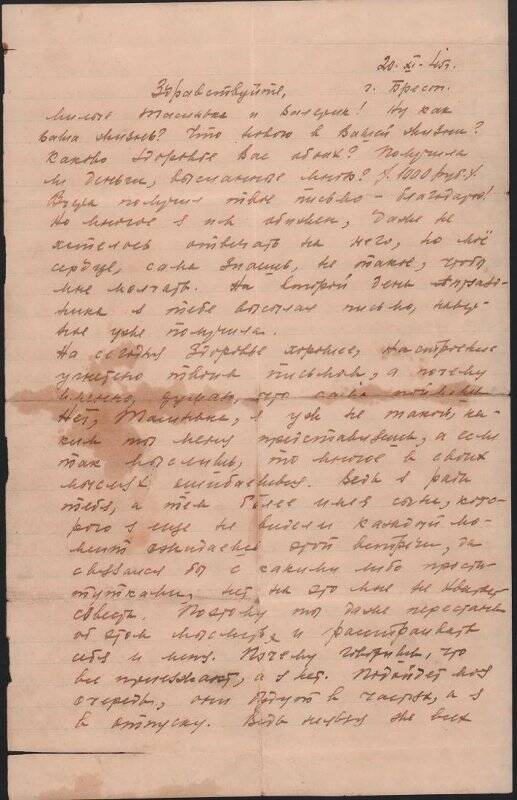 20-XI-45г.
Здравствуйте, г. Брест.
Милые Тасинька и Валерик! Ну как
Ваша жизнь? Что нового в Вашей жизни?
Каково здоровье Вас обоих? Получила
ли деньги, высланные мною? 1000 руб.
Вчера получил твое письмо - благодарю!
Но многое я им обижен, даже не
хотелось отвечать на него, но моё
сердце, сама знаешь, не такое, чтоб
мне молчать. На второй день праздника
я тебе выслал письмо, наверное
уже получила.
На сегодня здоровье хорошее, настроение
угнетено твоим письмом, а почему
именно, думаю, что сама
Нет, Тасинька, я уже не такой, каким
ты меня представляешь, а если
так мыслишь, то многое в своих
мыслях ошибаешься. Ведь я ради
тебя, а тем более имея сына, которого
я еще не видел и каждый момент
ожидаешь этой встречи, да
связался бы с какими либо проститутками,
нет, на это мне не хватит
совести. Поэтому ты даже перестань
об этом мыслить и расстраивать
себя и меня. Почему говоришь, что
все приезжают, а я нет. Подойдет моя
очередь, они будут в частях, а я
в отпуску. Ведь нельзя же всех